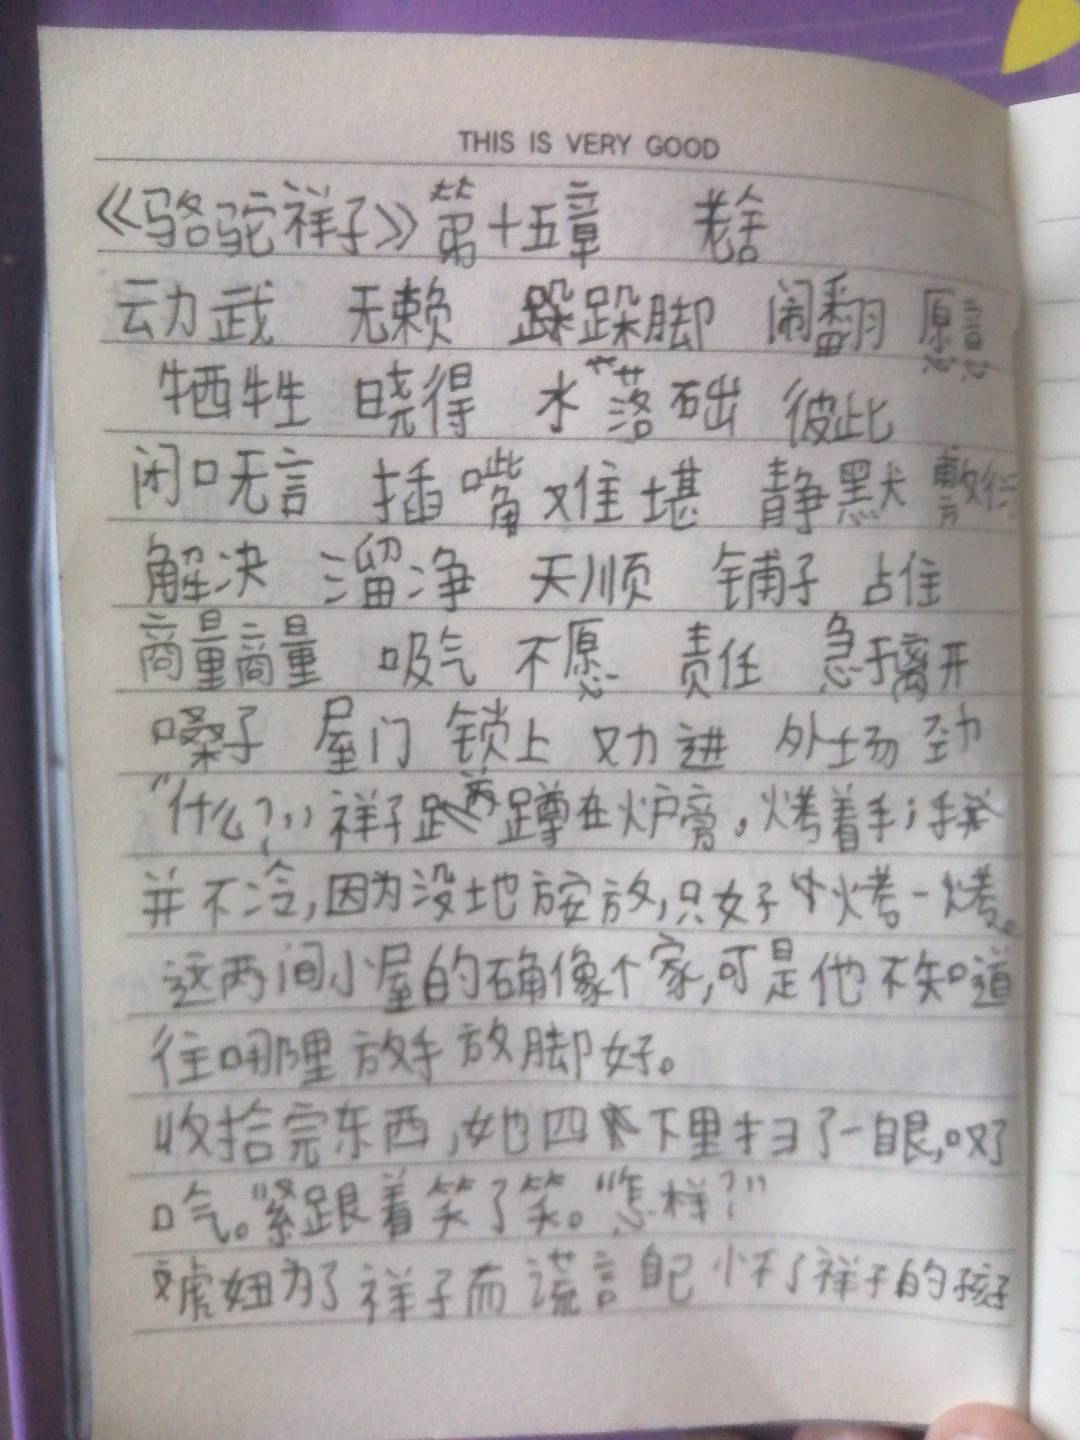 THIS IS VERY GOOD
《骆驼祥子》第十五章 老舍
动武 无赖 跺跺脚 闹翻 愿意
牺牲 晓得 水落石出 彼此
闭口无言 插嘴 难堪 静默 敷衍
解决 溜净 天顺 铺子 占住
商量商量 吸气 不愿 责任 急于离开
嗓子 屋门 锁上 劝进 外场劲
“什么？”祥子蹲在炉旁，烤着手；手
并不冷，因为没地方安放，只好烤一烤。
这两间小屋的确像个家，可是他不知道
往哪里放手放脚好。
收拾完东西，她四下里扫了一眼，叹了
口气。紧跟着笑了笑。“怎样？”
虎妞为了祥子而谎言自己怀了祥子的孩子